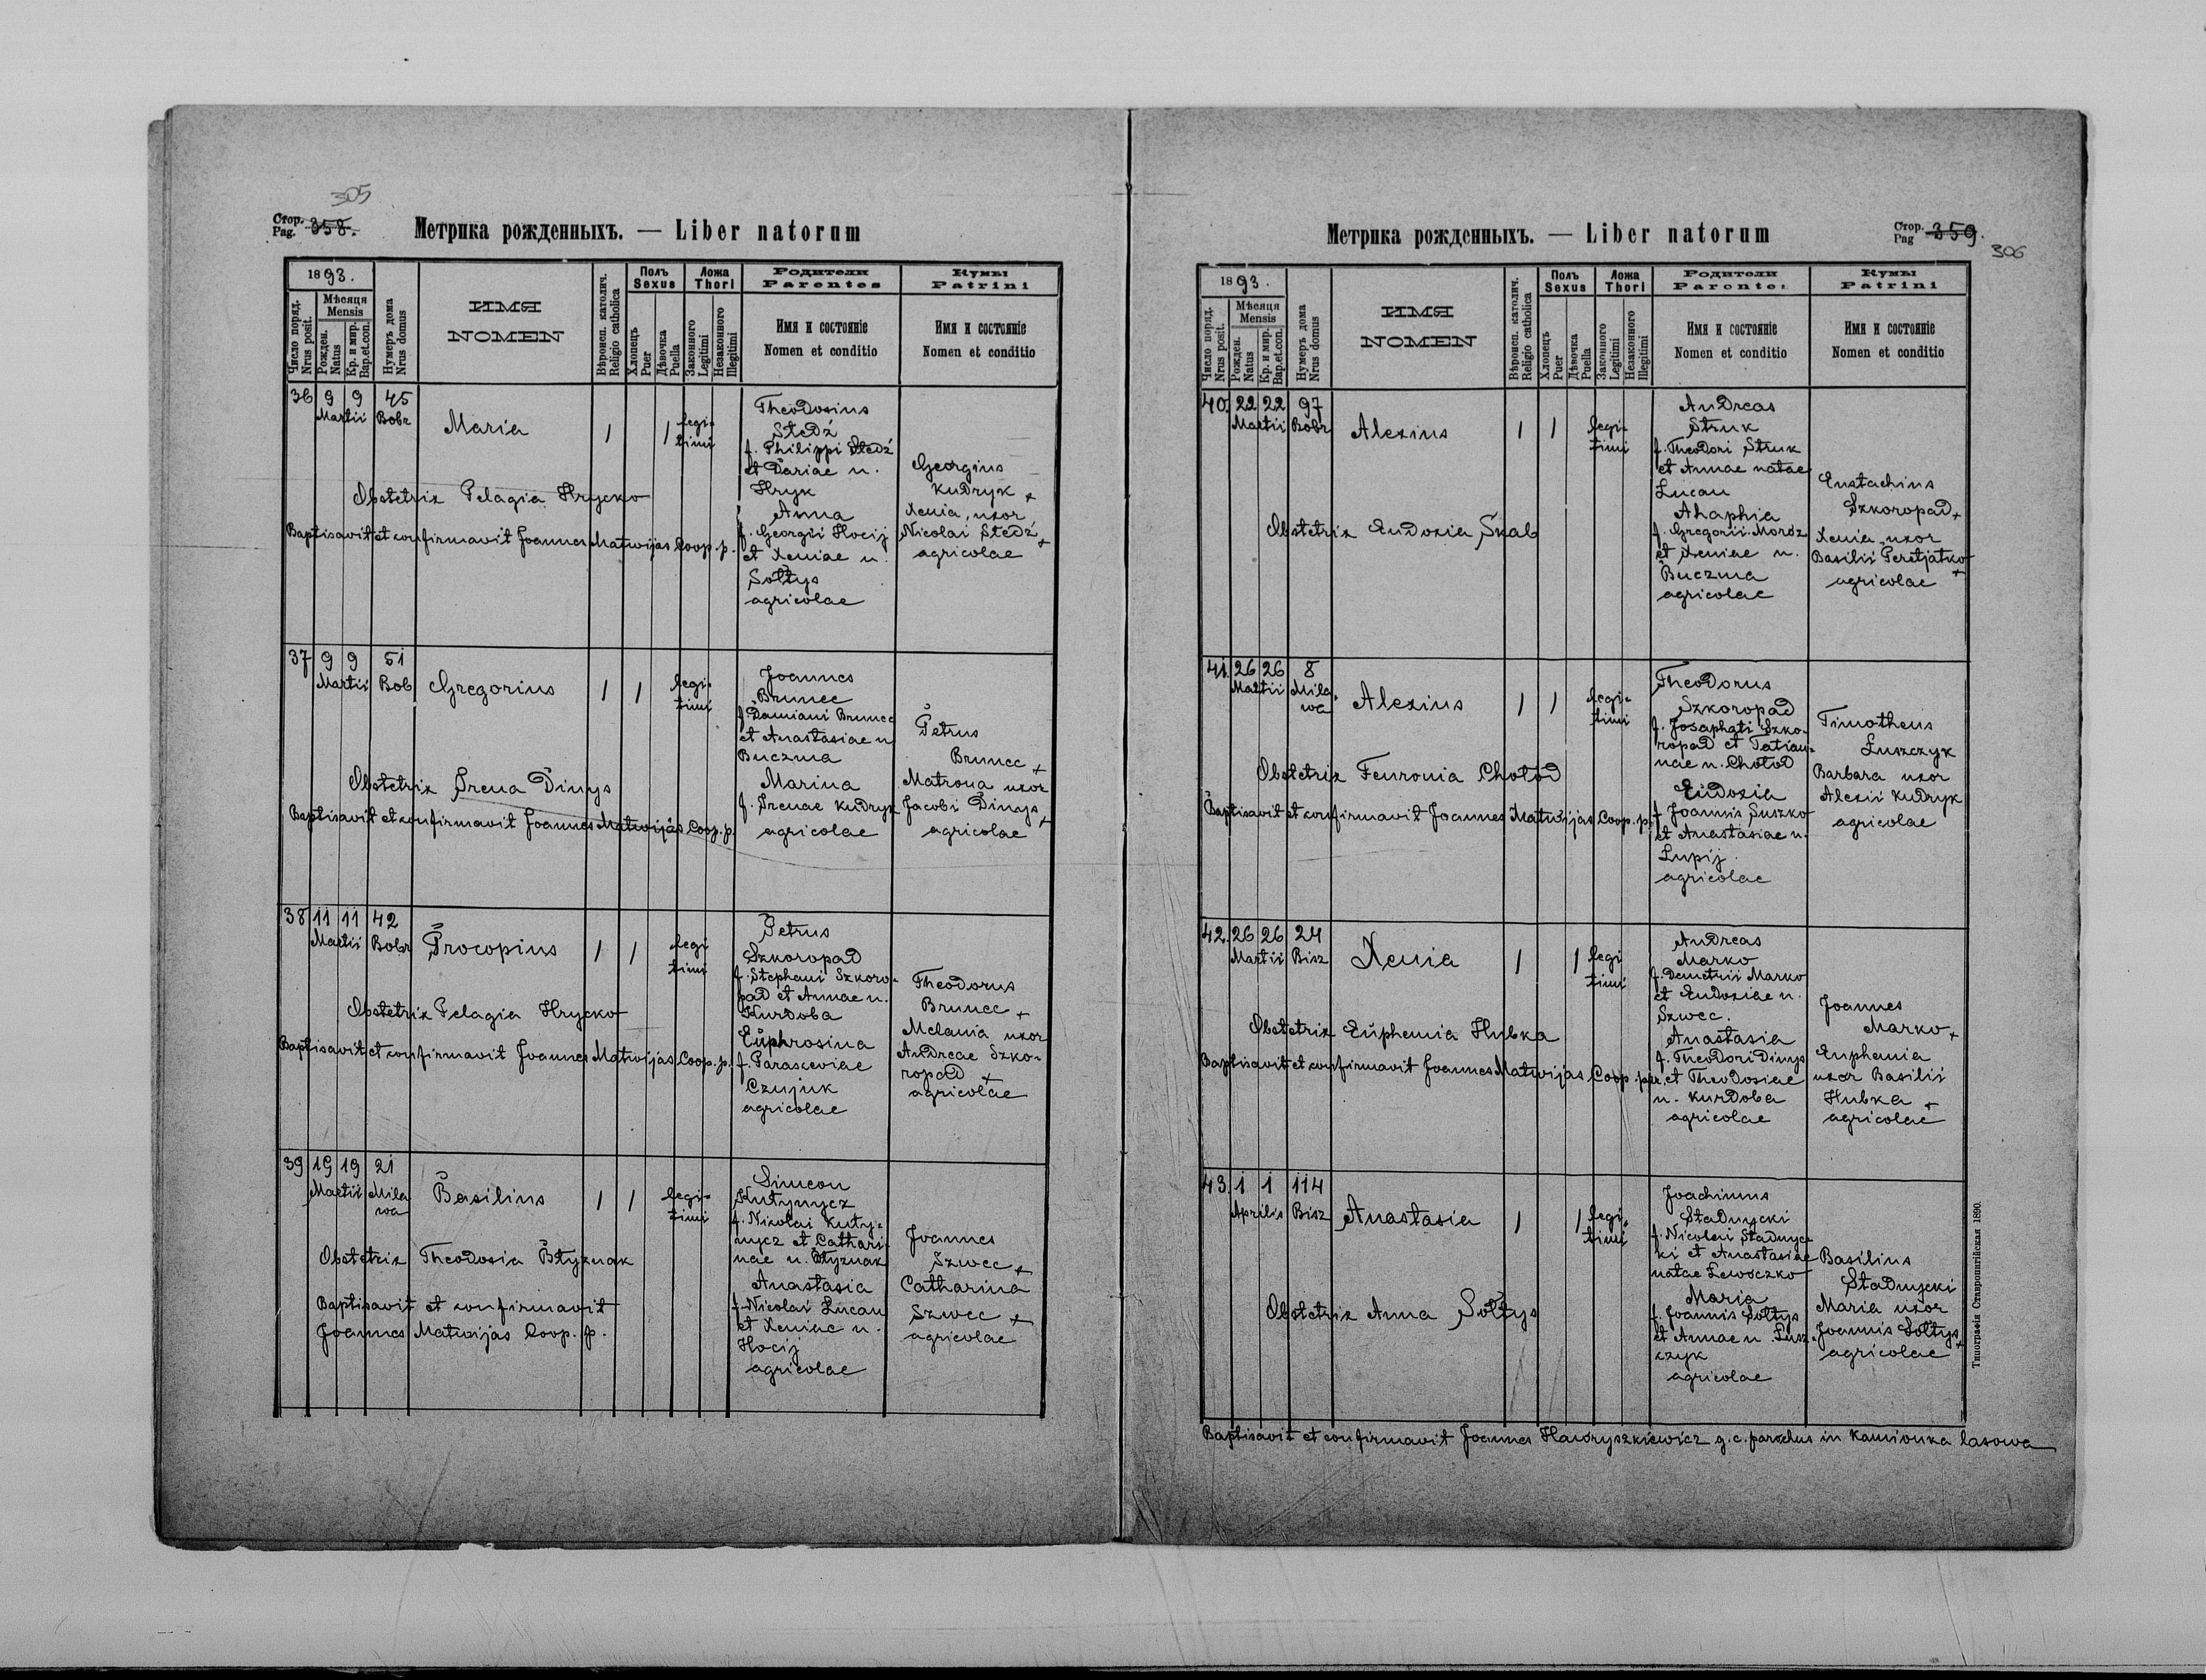 305
Стор. Pag. 358.
Метрика рожденныхъ. — Liber natorum
1893.
Число поряд. Nrus posit.
Мѣсяця Mensis
Рожден. Natus
Кр. и мир. Bap.et.con.
Нумеръ дома Nrus domus
ИМЯ
NOMEN
Вѣроисп. католич. Religio catholica
Полъ Sexus
Хлопецъ Puer
Дѣвочка Puella
Ложа Thori
Законного Legitimi
Незаконного Illegitimi
Родители Parentes
Имя и состоянie
Nomen et conditio
Кумы Patrini
Имя и состоянie
Nomen et conditio
36 9 9 45
Martii Bobr
Maria 1 1 legi-
timi
Theodosius
Stedź
f. Philippi Stedź
et Dariae n.
Hryk
Anna
f. Georgii Hocij
et Xeniae n.
Sołtys
agricolae
Georgius
Kudryk +
Xenia, uxor
Nicolai Stedź +
agricolae
Obstetrix Pelagia Hrycko
Baptisavit et confirmavit Joannes Matwijas Coop. p.
37 9 9 51
Martii Bob
Gregorius 1 1 legi-
timi
Joannes
Brunec
f. Damiani Brunec
et Anastasiae n
Buczma
Marina
f. Irenae Kudryk
agricolae
Petrus
Brunec +
Matrona uxor
Jacobi Dinys +
agricolae
Obstetrix Irena Dinys
Baptisavit et confirmavit Joannes Matwijas Coop. p.
38 11 11 42
Martii Bobr
Procopius 1 1 legi
timi
Petrus
Szkoropad
f. Stephani Szkoro-
pad et Annae n.
Kurdoba
Euphrosina
f. Parasceviae
Czujuk
agricolae
Theodorus
Brunec +
Melania uxor
Andreae Szko-
ropad +
agricolae
Obstetrix Pelagia Hrycko
Baptisavit et confirmavit Joannes Matwijas Coop. p.
39 19 19 21
Martii Mila
wa
Basilius 1 1 legi-
timi
Simeon
Kutynycz
f. Nicolai Kuty-
nycz et Cathari-
nae n. Btyznak
Anastasia
f. Nicolai Lucan
et Xeniae n.
Hocij
agricolae
Joannes
Szwec +
Catharina
Szwec +
agricolae
Obstetrix Theodosia Btyznak
Baptisavit et confirmavit
Joannes Matwijas Coop. p.
Метрика рожденныхъ. — Liber natorum
Стор. Pag 359.
306
1893.
Число поряд. Nrus posit.
Мѣсяця Mensis
Рожден. Natus
Кр. и мир. Bap.et.con.
Нумеръ дома Nrus domus
ИМЯ
NOMEN
Вѣроисп. католич. Religio catholica
Полъ Sexus
Хлопецъ Puer
Дѣвочка Puella
Ложа Thori
Законного Legitimi
Незаконного Illegitimi
Родители Parentes
Имя и состоянie
Nomen et conditio
Кумы Patrini
Имя и состоянie
Nomen et conditio
40. 22 22 97
Martii Bobr
Alexius 1 1 legi-
timi
Andreas
Struk
f. Theodori Struk
et Annae natae
Lucan
Ahaphia
f. Gregorii Moroz
et Xeniae n.
Buczma
agricolae
Eustachius
Szkoropad +
Xenia uxor
Basilii Peretjatko +
agricolae
Obstetrix Eudoxia Skab
41. 26 26 8
Martii Mila-
wa
Alexius 1 1 legi-
timi
Theodorus
Szkoropad
f. Josaphati Szko-
ropad et Tatian-
nae n. Chołod
Eudoxia
f Joannis Suszko
et Anastasiae n.
Lupij.
agricolae
Timotheus
Łuszczyk
Barbara uxor
Alexii Kudryk
agricolae
Obstetrix Feuronia Chołod
Baptisavit et confirmavit Joannes Matwijas Coop. p.
42. 26 26 24
Martii Bisz
Xenia 1 1 legi
timi
Andreas
Marko
f. Demetrii Marko
et Eudoxiae n.
Szwec.
Anastasia
f. Theodori Dinys
et Theodosiae
n. Kurdoba
agricolae
Joannes
Marko +
Euphemia
uxor Basilii
Hubka +
agricolae
Obstetrix Euphemia Hubka
Baptisavit et confirmavit Joannes Matwijas Coop. par.
43. 1 1 114
Aprilis Bisz
Anastasia 1 1 legi-
timi
Joachimus
Stadnycki
f. Nicolai Stadnyc-
ki et Anastasiae
natae Lewoczko
Maria
f. Joannis Sołtys
et Annae n. Łusz-
czyk
agricolae
Basilius
Stadnycki
Maria uxor
Joannis Sołtys +
agricolae
Obstetrix Anna Sołtys
Baptisavit et confirmavit Joannes Hawryszkiewicz g. c. parochus in Kamionka lasowa
Типографія Ставропигійская 1890.